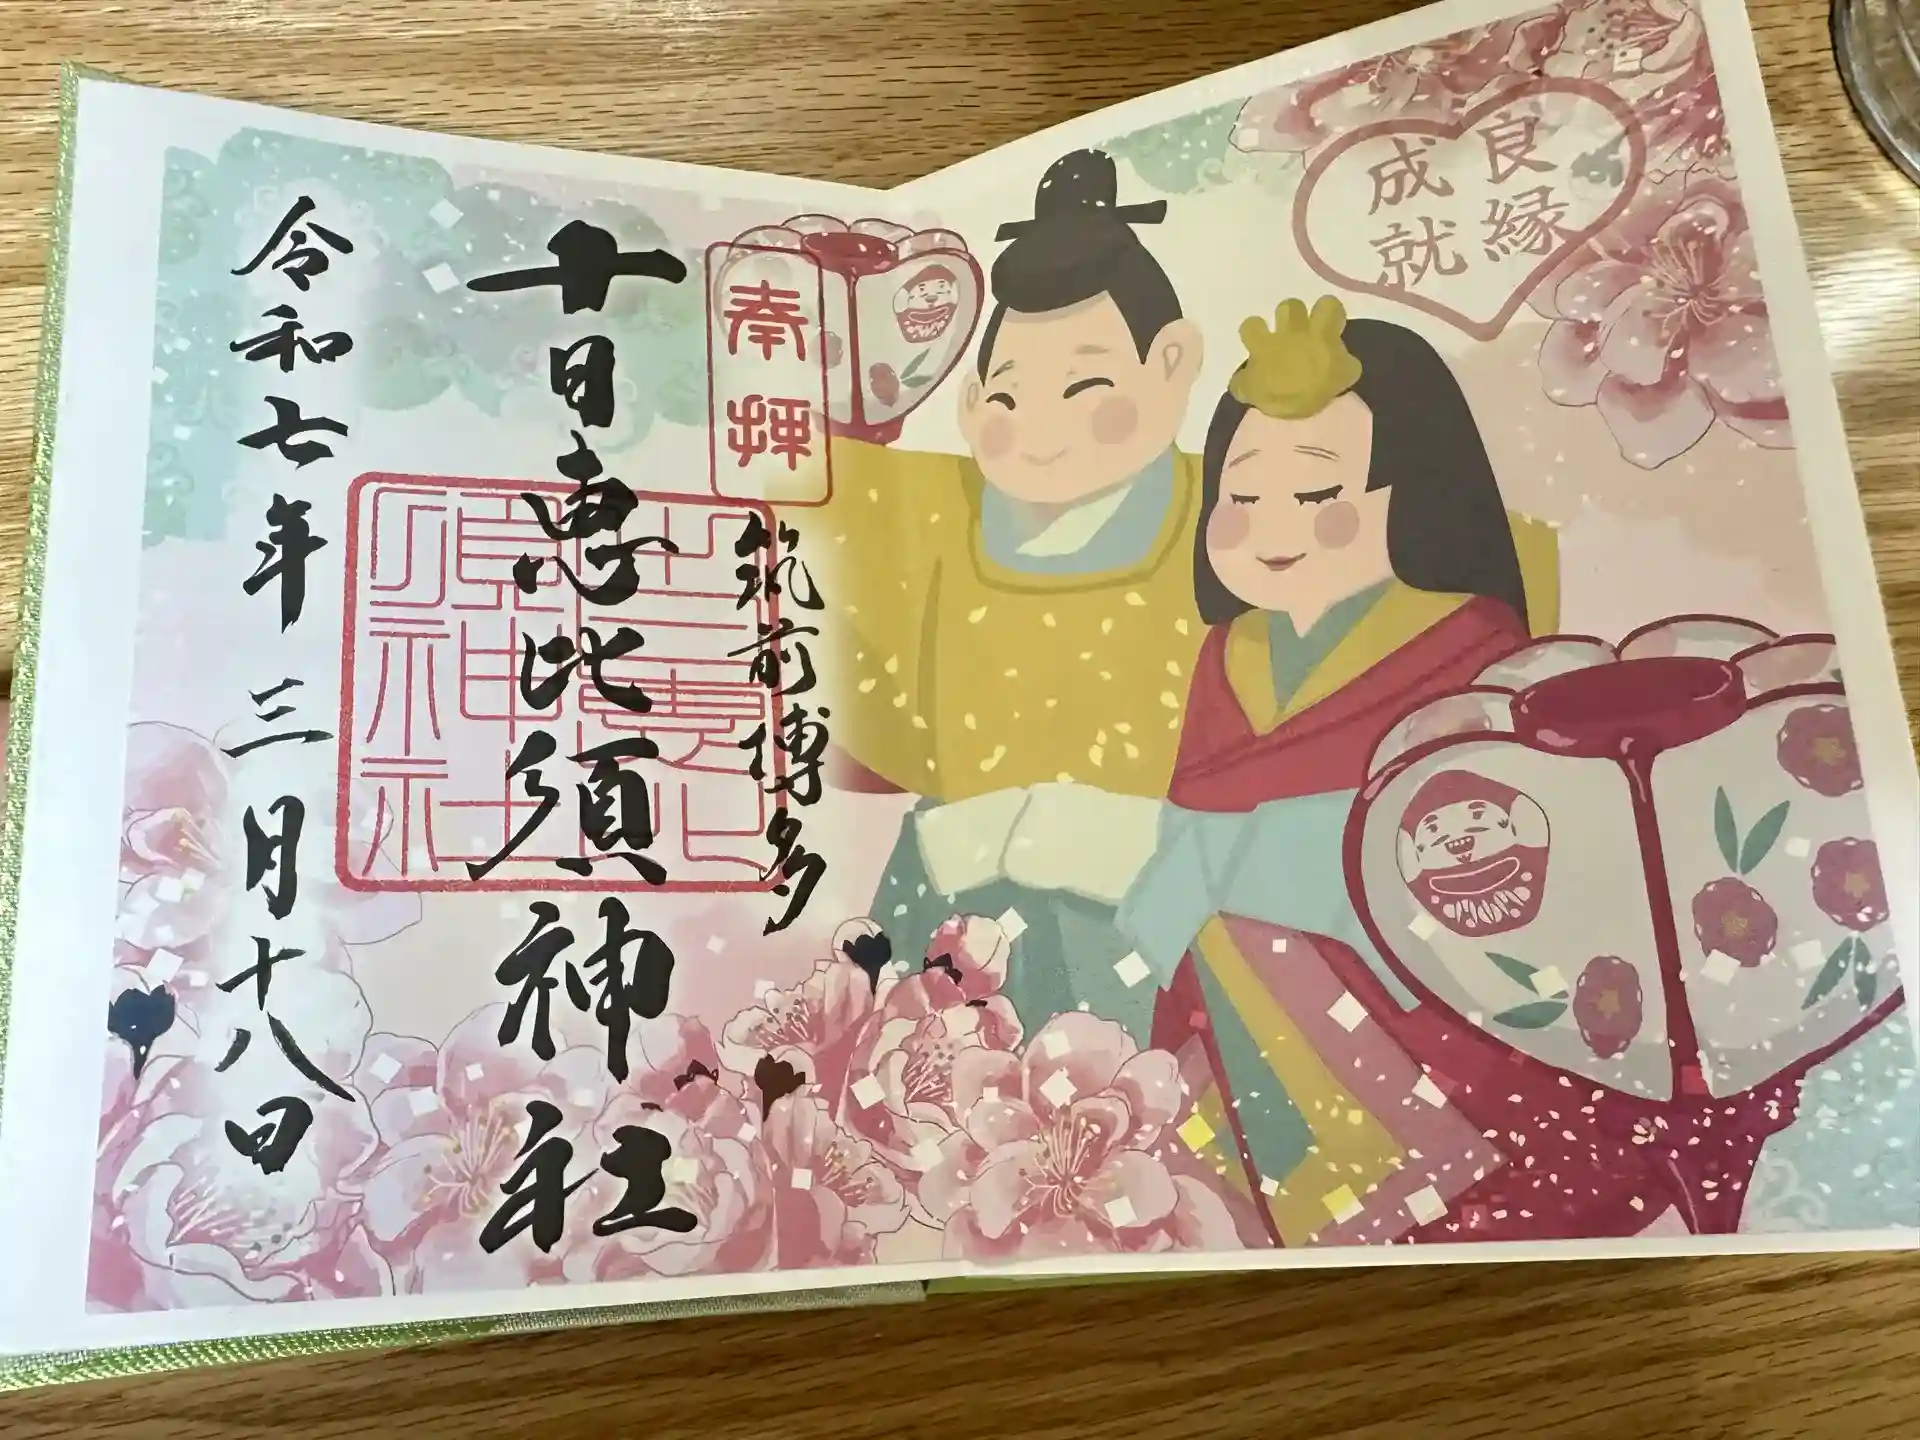 良縁
成就
奉拝
筑前博多
十日恵比須神社
十日恵比須神社
令和七年三月十八日